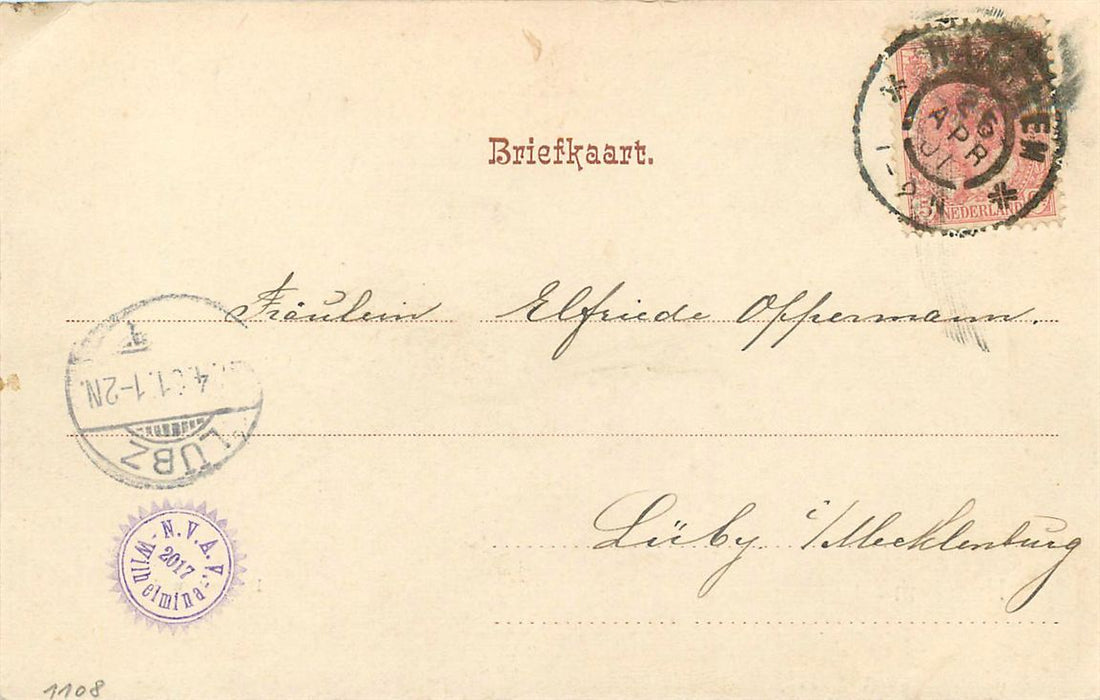 Briefkaart.
26
APR
01
1-2N
5 NEDERLAND
Fräulein Elfriede Oppermann.
4.01.1-2N.
LÜBZ
Lübz i/Mecklenburg
N.V.A.P.
2017
Wilhelmina
1108